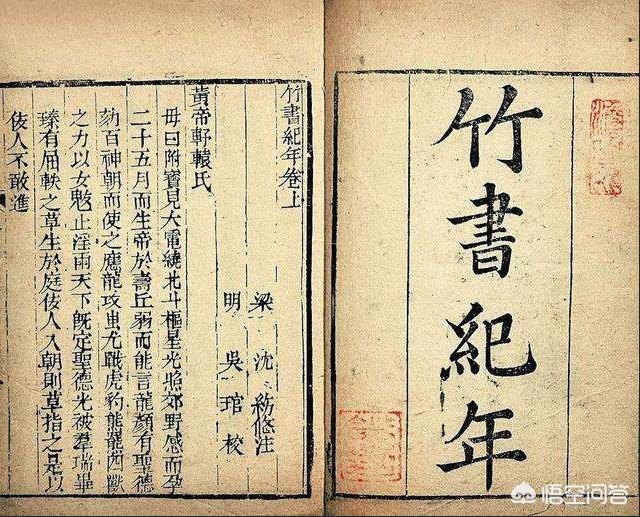 竹書紀年
竹書紀年卷上
梁 沈 約附注
明 吳 琯 校
黃帝軒轅氏
母曰附寶見大電繞北斗樞星光照郊野感而孕
二十五月而生帝於壽丘弱而能言龍顏有聖德
劾百神朝而使之應龍攻蚩尤戰虎豹熊羆四獸
之力以女魃止淫雨天下既定聖德光被羣瑞畢
臻有屈軼之草生於庭佞人入朝則草指之是以
佞人不敢進
悟空问答